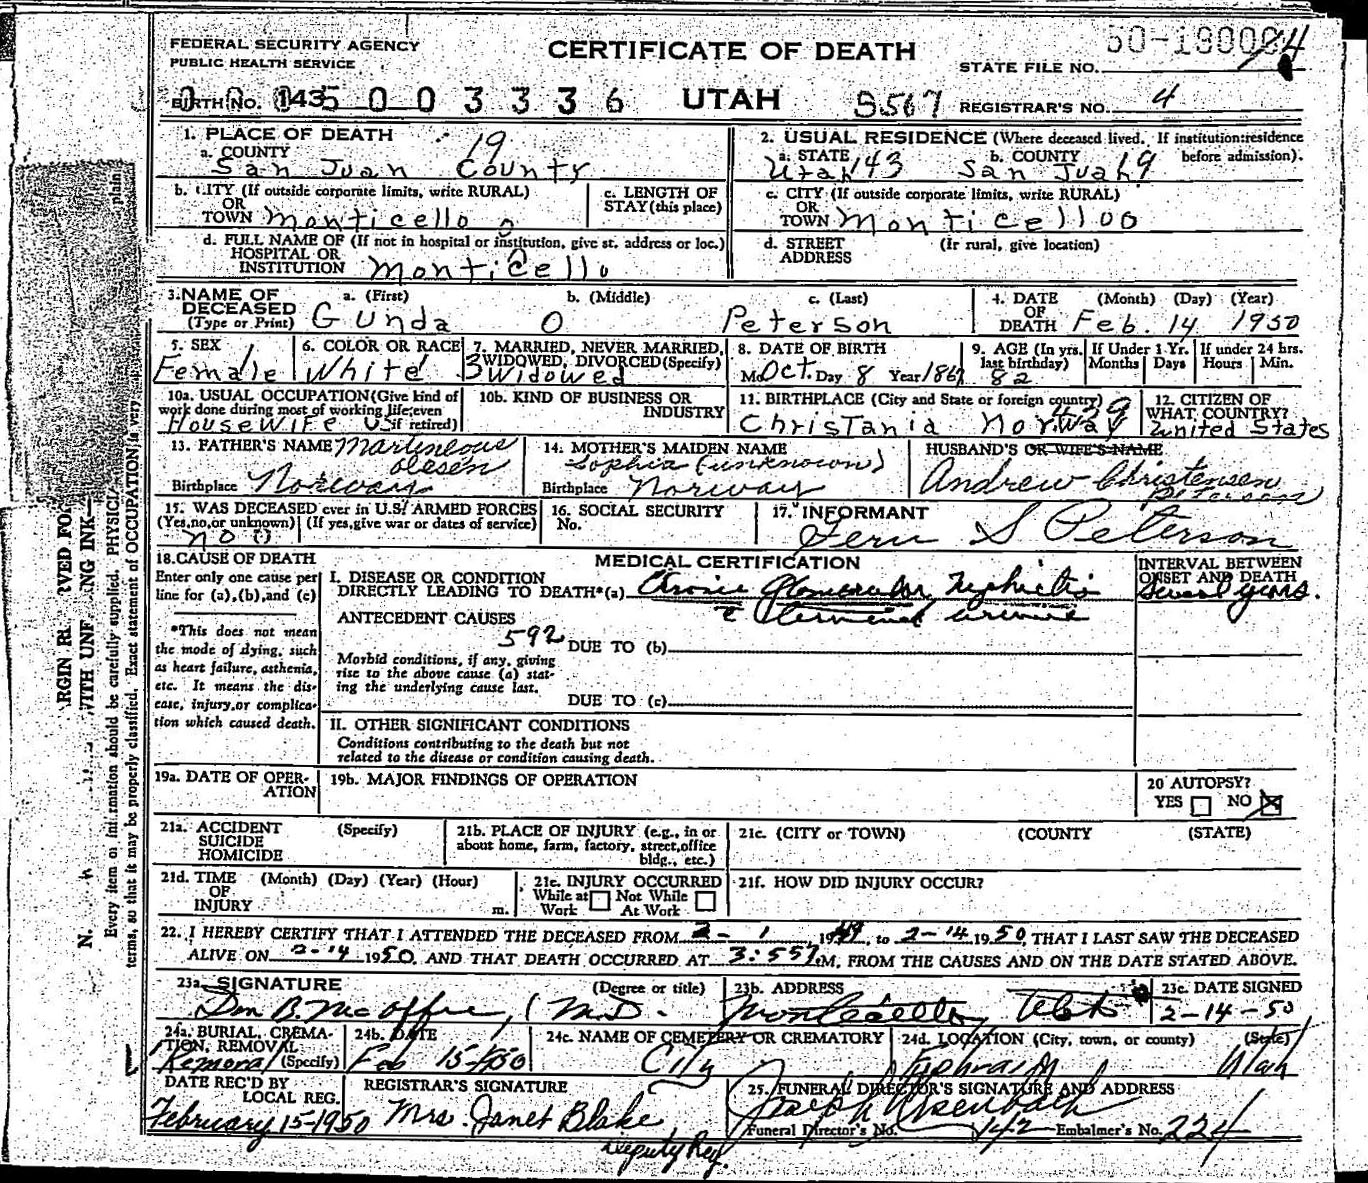 FEDERAL SECURITY AGENCY
PUBLIC HEALTH SERVICE
CERTIFICATE OF DEATH
STATE FILE NO.
BIRTH NO. 143 5 0 0 3 3 3 6 UTAH S567 REGISTRAR'S NO. 4
1. PLACE OF DEATH 19
a. COUNTY
San Juan County
2. USUAL RESIDENCE (Where deceased lived. If institution: residence before admission).
a. STATE Utah 143 b. COUNTY San Juan 19
b. CITY (If outside corporate limits, write RURAL)
OR
TOWN Monticello 0
c. LENGTH OF
STAY (this place)
c. CITY (If outside corporate limits, write RURAL)
OR
TOWN Monticello 0
d. FULL NAME OF (If not in hospital or institution, give st. address or loc.)
HOSPITAL OR
INSTITUTION Monticello
d. STREET (If rural, give location)
ADDRESS
3. NAME OF a. (First) b. (Middle) c. (Last)
DECEASED
(Type or Print) Gunda O Peterson
4. DATE (Month) (Day) (Year)
OF
DEATH Feb. 14 1950
5. SEX
Female
6. COLOR OR RACE
White
7. MARRIED, NEVER MARRIED,
WIDOWED, DIVORCED (Specify)
3 Widowed
8. DATE OF BIRTH
Mo. Oct. Day 8 Year 1867
9. AGE (In yrs. last birthday)
82
If Under 1 Yr.
Months Days
If under 24 hrs.
Hours Min.
10a. USUAL OCCUPATION (Give kind of
work done during most of working life, even
if retired)
Housewife
10b. KIND OF BUSINESS OR
INDUSTRY
11. BIRTHPLACE (City and State or foreign country)
Christania Norway 429
12. CITIZEN OF
WHAT COUNTRY?
United States
13. FATHER'S NAME Martineous
Olesen
Birthplace Norway
14. MOTHER'S MAIDEN NAME
Sophia (unknown)
Birthplace Norway
HUSBAND'S OR WIFE'S NAME
Andrew Christensen
Peterson
15. WAS DECEASED ever in U.S. ARMED FORCES
(Yes, no, or unknown) (If yes, give war or dates of service)
no 0
16. SOCIAL SECURITY
No.
17. INFORMANT
Fern S Peterson
18. CAUSE OF DEATH
Enter only one cause per
line for (a), (b), and (c)
*This does not mean
the mode of dying, such
as heart failure, asthenia,
etc. It means the dis-
ease, injury, or complica-
tion which caused death.
MEDICAL CERTIFICATION
I. DISEASE OR CONDITION
DIRECTLY LEADING TO DEATH*(a) Chronic Glomerular Nephritis
c Terminal uremia
INTERVAL BETWEEN
ONSET AND DEATH
Several years.
ANTECEDENT CAUSES
592 DUE TO (b)
Morbid conditions, if any, giving
rise to the above cause (a) stat-
ing the underlying cause last.
DUE TO (c)
II. OTHER SIGNIFICANT CONDITIONS
Conditions contributing to the death but not
related to the disease or condition causing death.
19a. DATE OF OPER-
ATION
19b. MAJOR FINDINGS OF OPERATION
20 AUTOPSY?
YES NO
21a. ACCIDENT (Specify)
SUICIDE
HOMICIDE
21b. PLACE OF INJURY (e.g., in or
about home, farm, factory, street, office
bldg., etc.)
21c. (CITY or TOWN) (COUNTY (STATE)
21d. TIME (Month) (Day) (Year) (Hour)
OF
INJURY m.
21e. INJURY OCCURRED
While at Not While
Work At Work
21f. HOW DID INJURY OCCUR?
22. I HEREBY CERTIFY THAT I ATTENDED THE DECEASED FROM 2-1 1949, to 2-14 1950, THAT I LAST SAW THE DECEASED
ALIVE ON 2-14 1950, AND THAT DEATH OCCURRED AT 3:55 M, FROM THE CAUSES AND ON THE DATE STATED ABOVE.
23a. SIGNATURE (Degree or title)
M.D.
23b. ADDRESS
Monticello, Utah
23c. DATE SIGNED
2-14-50
24a. BURIAL, CREMA-
TION, REMOVAL
(Specify)
Removal
24b. DATE
Feb 15-1950
24c. NAME OF CEMETERY OR CREMATORY
City
24d. LOCATION (City, town, or county) (State)
Ephraim Utah
DATE REC'D BY
LOCAL REG.
February 15-1950
REGISTRAR'S SIGNATURE
Mrs. Janet Blake
Deputy Reg.
25. FUNERAL DIRECTOR'S SIGNATURE AND ADDRESS
Funeral Director's No. 142 Embalmer's No. 224
Every item of information should be carefully supplied. PHYSICI
terms, so that it may be properly classified. Exact statement of OCCUPATION is very
plain